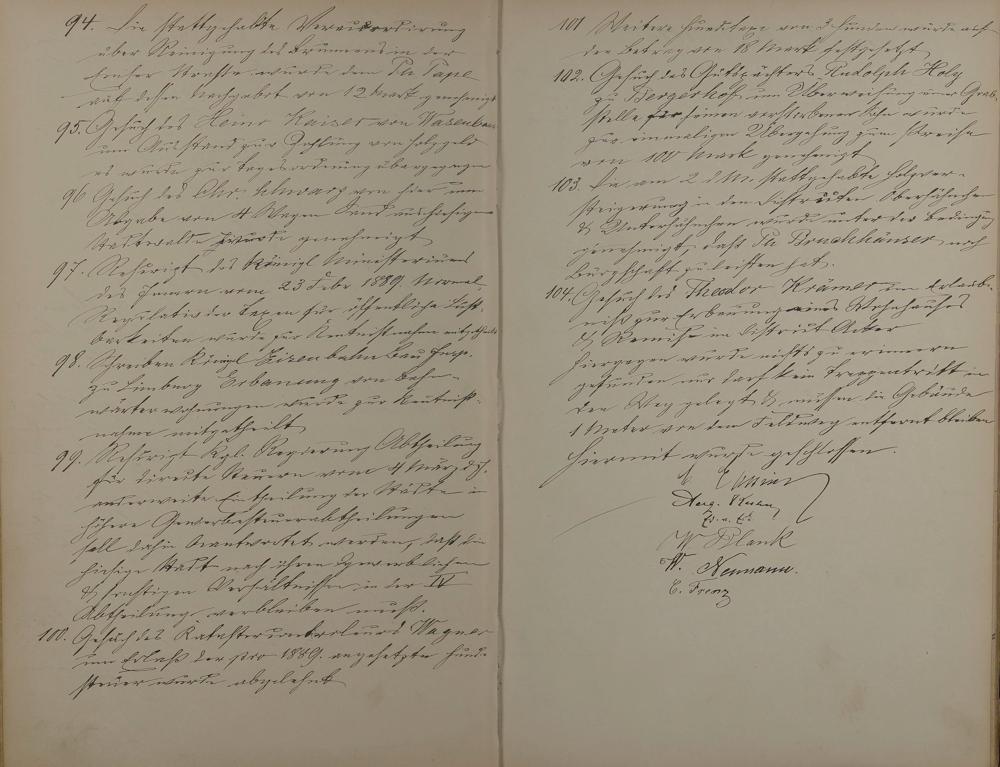 94. Die stattgehabte Veraccordirung
über Reinigung des Brunnens in der
Emser Straße wurde dem Ph Pape
auf dessen Nachgebot von 12 Mark genehmigt
95. Gesuch des Heinr Kaiser von Wasenbach
um Ausstand zur Zahlung von Holzgeld
es wurde zur Tagesordnung übergegangen
96 Gesuch des Chr. Schwarz von hier um
Abgabe von 4 Wagen Sand aus hiesigem
Stadtwalde wurde genehmigt
97. Rescript des Königl Ministeriums
des Innern vom 23 Febr 1889. Normal-
Regulativ der Taxen für öffentliche Lust-
barkeiten wurde zur Kenntnißnahme mitgetheilt
98. Schreiben Königl Eisenbahn Bau Insp.
zu Limburg Erbauung von Bahn-
wärterwohnungen wurde zur Kenntniß-
nahme mitgetheilt
99. Rescript Kgl. Regierung Abtheilung
für directe Steuern vom 4 März d. J.
anderweite Eintheilung der Städte in
höhere Gewerbesteuerabtheilungen
soll dahin beantwortet werden, daß die
hiesige Stadt nach ihren gewerblichen
& sonstigen Verhältnissen in der IV
Abtheilung verbleiben muß.
100. Gesuch des Katastercontroleurs Wagner
um Erlaß der pro 1889. angesetzten Hunde-
steuer wurde abgelehnt
101 Weitere Hundetaxe von 3 Hunden wurde auf
den Betrag von 18 Mark festgesetzt
102. Gesuch des Gutspächters Rudolph Holy
zu Bergerhof um Überweisung einer Grab-
stelle für seinen verstorbenen Sohn wurde
zur einmaligen Übergehung zum Preise
von 100 Mark genehmigt
103. Die am 2 d. M. stattgehabte Holzver-
steigerung in den Distrikten Oberhähnchen
& Unterhähnchen wurde unter der Bedingung
genehmigt, daß Ph Bruchhäuser noch
Bürgschaft zu leisten hat.
104. Gesuch des Theodor Kramer um Erlaub-
niß zur Erbauung eines Wohnhauses
& Remise im Distrikt
Hiergegen wurde nichts zu erinnern
gefunden nur darf kein Treppentritt in
den Weg gelegt & müssen die Gebäude
1 Meter von dem Feldweg entfernt bleiben
Hiermit wurde geschlossen.
W Blank
W. Neumann.